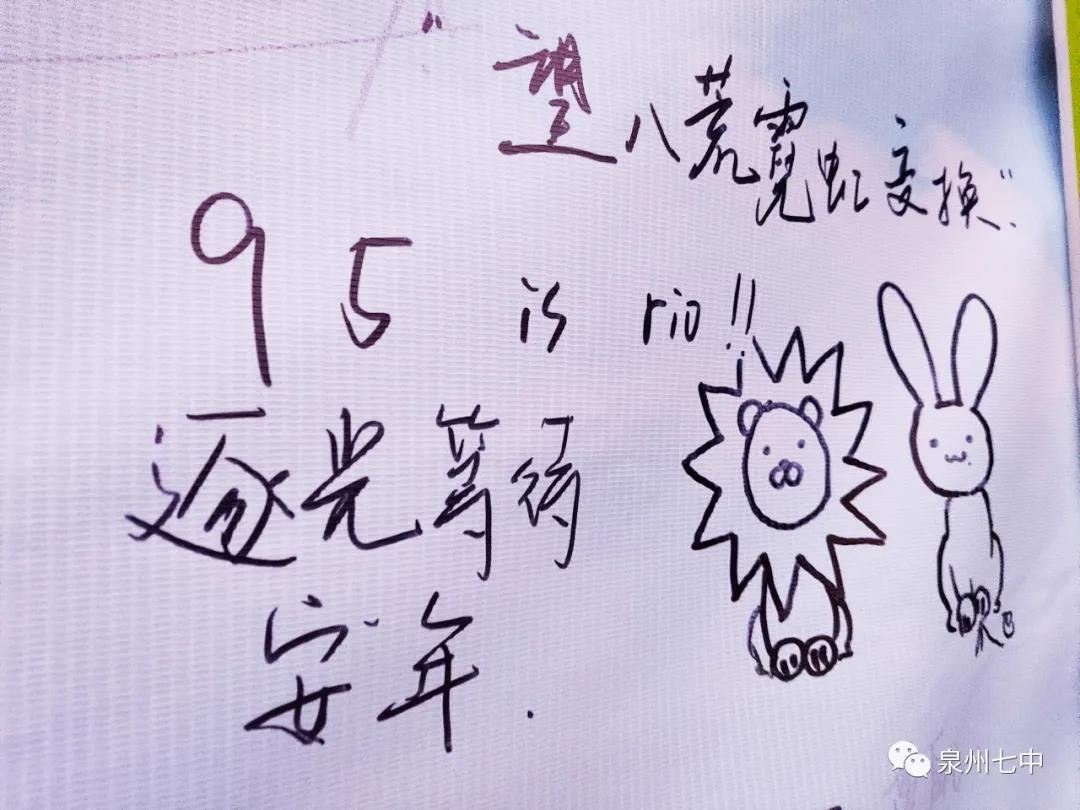 “望八荒霓虹变换”.
95 is rio!!
逐光等待
安年.
泉州七中